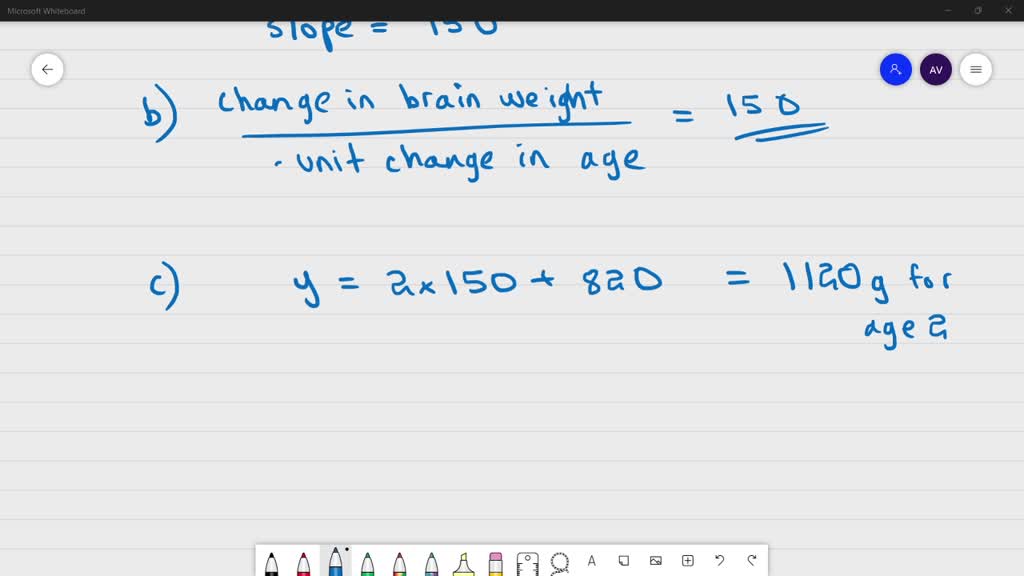 Microsoft Whiteboard
slope = 150
AV
b) change in brain weight = 150
unit change in age
c) y = 2 x 150 + 820 = 1120 g for
age 2
A